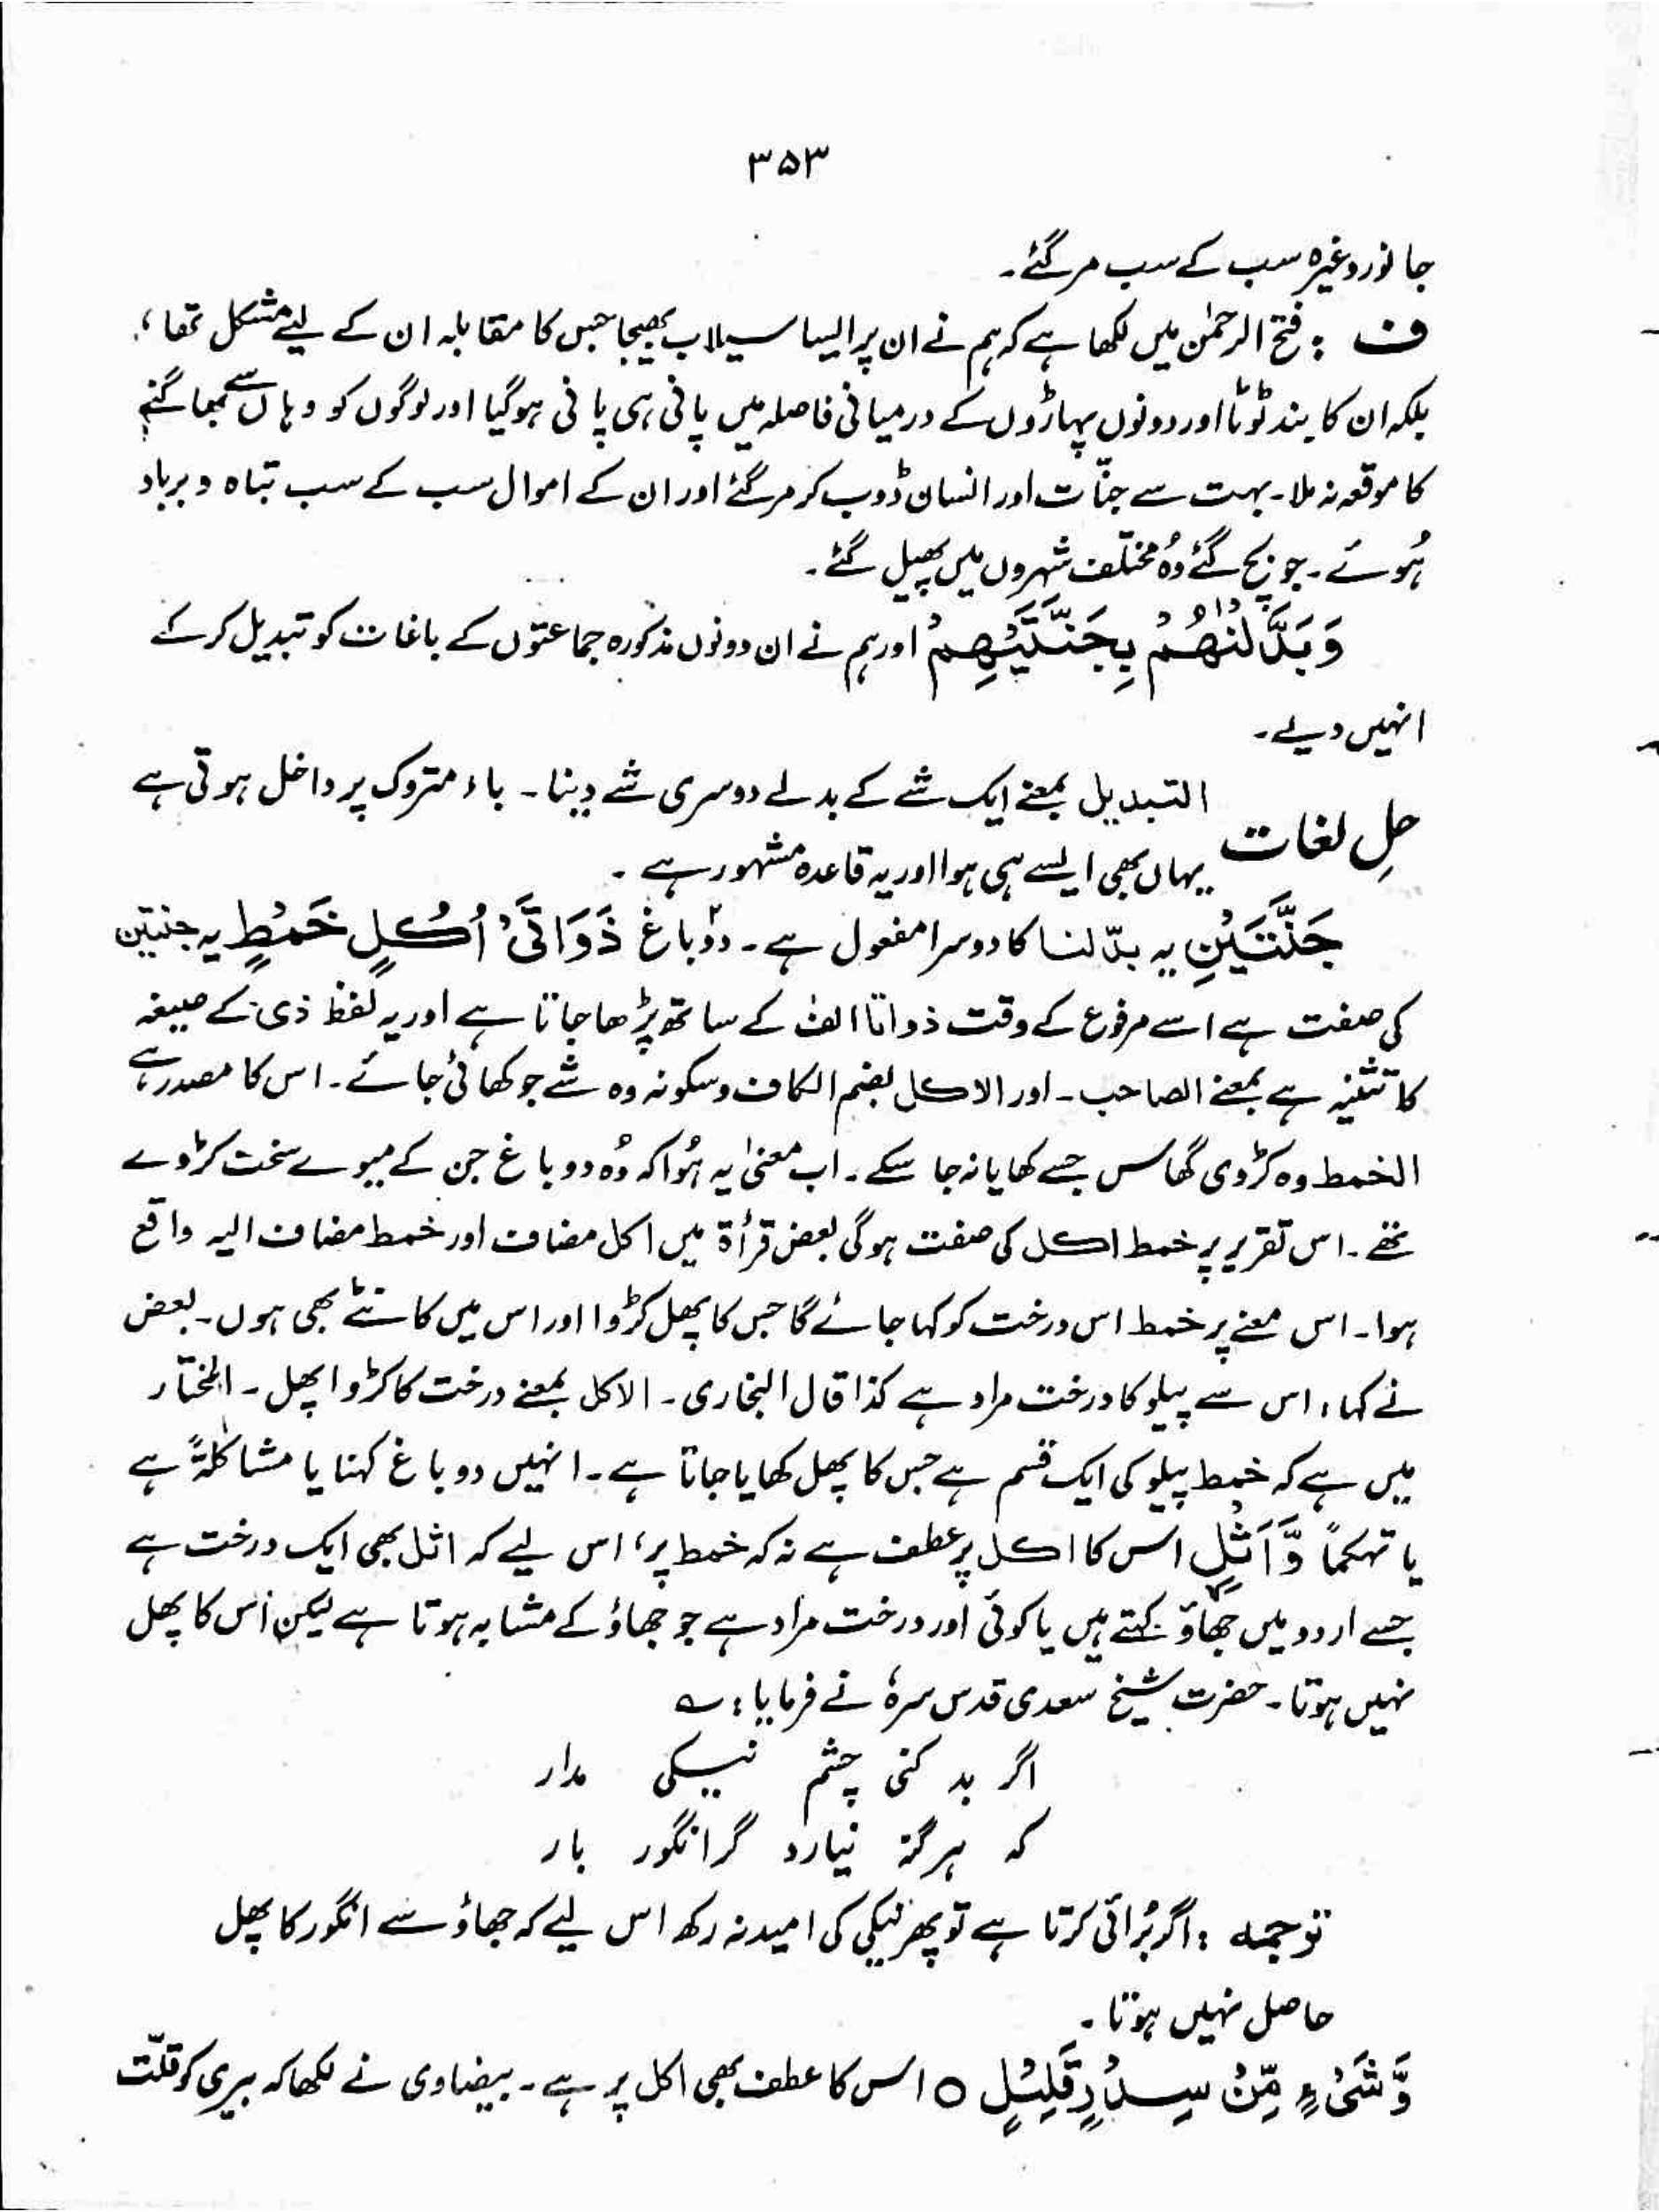 ۳۵۳
جانور وغیرہ سب کے سب مر گئے۔
ف : فتح الرحمٰن میں لکھا ہے کہ ہم نے ان پر ایسا سیلاب بھیجا جس کا مقابلہ ان کے لیے مشکل تھا،
بلکہ ان کا بند ٹوٹا اور دونوں پہاڑوں کے درمیانی فاصلہ میں پانی ہی پانی ہوگیا اور لوگوں کو وہاں سے بھاگنے
کا موقعہ نہ ملا۔ بہت سے جنّات اور انسان ڈوب کر مر گئے اور ان کے اموال سب کے سب تباہ و برباد
ہُوئے۔ جو بچ گئے وُہ مختلف شہروں میں پھیل گئے۔
وَبَدَّلْنٰهُمْ بِجَنَّتَيْهِمْ اور ہم نے ان دونوں مذکورہ جماعتوں کے باغات کو تبدیل کر کے
انہیں دیے۔
حلِ لغات التبدیل بمعنے ایک شے کے بدلے دوسری شے دینا۔ باء متروک پر داخل ہوتی ہے
یہاں بھی ایسے ہی ہوا اور یہ قاعدہ مشہور ہے۔
جَنَّتَيْنِ یہ بدّلنا کا دوسرا مفعول ہے۔ دو باغ ذَوَاتَیْ اُکُلٍ خَمْطٍ یہ جنتین
کی صفت ہے اسے مرفوع کے وقت ذواتا الف کے ساتھ پڑھا جاتا ہے اور یہ لفظ ذی کے صیغہ
کا تثنیہ ہے بمعنے الصاحب۔ اور الاکل بضم الکاف وسکونہ وہ شے جو کھائی جائے۔ اس کا مصدر ہے
الخمط وہ کڑوی گھاس جسے کھایا نہ جا سکے۔ اب معنیٰ یہ ہُوا کہ وُہ دو باغ جن کے میوے سخت کڑوے
تھے۔ اس تقریر پر خمط اکل کی صفت ہوگی بعض قرأۃ میں اکل مضاف اور خمط مضاف الیہ واقع
ہوا۔ اس معنے پر خمط اس درخت کو کہا جائے گا جس کا پھل کڑوا اور اس میں کانٹے بھی ہوں۔ بعض
نے کہا، اس سے پیلو کا درخت مراد ہے کذا قال البخاری۔ الاکل بمعنے درخت کا کڑوا پھل۔ المختار
میں ہے کہ خمط پیلو کی ایک قسم ہے جس کا پھل کھایا جاتا ہے۔ انہیں دو باغ کہنا یا مشاکلۃً ہے
یا تہکماً وَّاَثْلٍ اس کا اکل پر عطف ہے نہ کہ خمط پر، اس لیے کہ اثل بھی ایک درخت ہے
جسے اردو میں جھاؤ کہتے ہیں یا کوئی اور درخت مراد ہے جو جھاؤ کے مشابہ ہوتا ہے لیکن اس کا پھل
نہیں ہوتا۔ حضرت شیخ سعدی قدس سرہٗ نے فرمایا : ؎
اگر بد کنی چشم نیکی مدار
کہ ہرگز نیارد گز انگور بار
ترجمہ : اگر بُرائی کرتا ہے تو پھر نیکی کی امید نہ رکھ اس لیے کہ جھاؤ سے انگور کا پھل
حاصل نہیں ہوتا۔
وَّشَیْءٍ مِّنْ سِدْرٍ قَلِیْلٍ ○ اس کا عطف بھی اکل پر ہے۔ بیضاوی نے لکھا کہ بیری کو قلّت